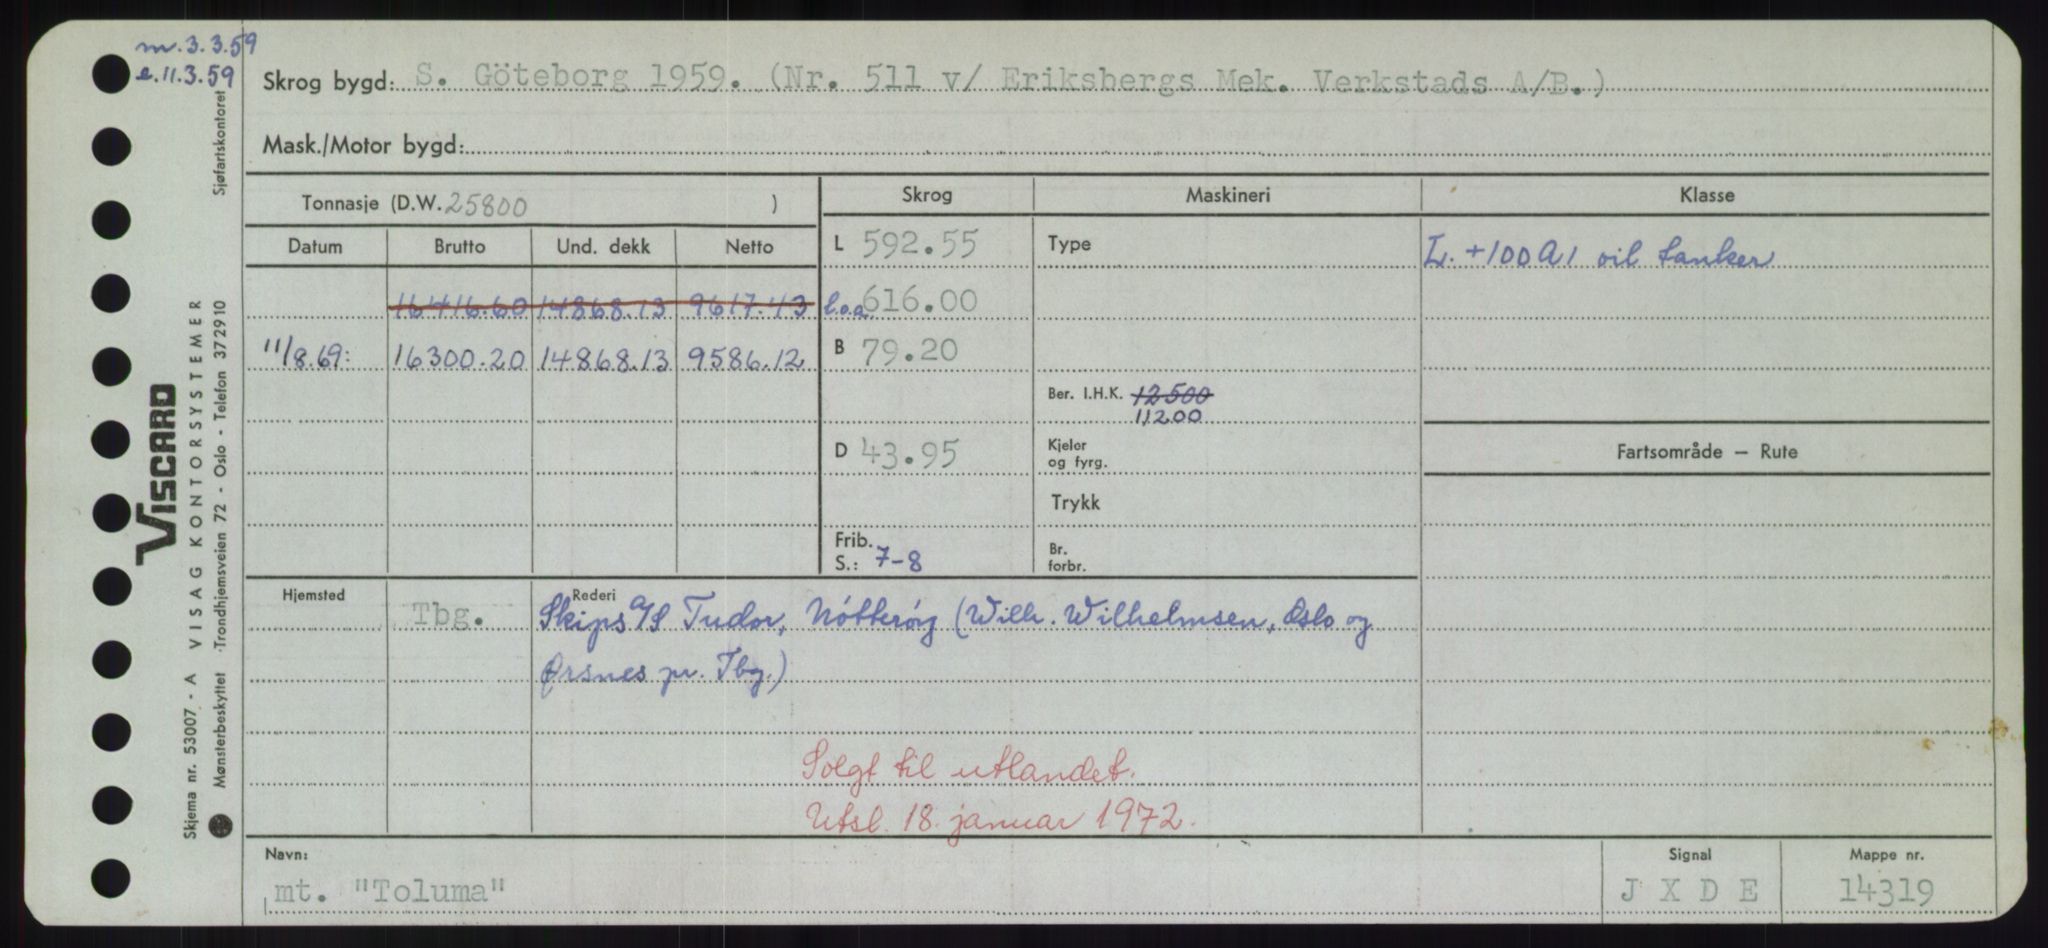 m. 3.3.59
e. 11.3.59
Skrog bygd: S. Göteborg 1959. (Nr. 511 v/ Eriksbergs Mek. Verkstads A/B.)
Mask./Motor bygd:
Tonnasje (D.W. 25800 )
Skrog Maskineri Klasse
Datum Brutto Und. dekk Netto
L 592.55
Type
L. +100 A1 oil tanker
16416.60 14868.13 9617.43
l.o.a. 616.00
11/8.69: 16300.20 14868.13 9586.12
B 79.20
Ber. I.H.K. 12500
11200
D 43.95
Kjeler
og fyrg.
Fartsområde – Rute
Trykk
Frib.
S.: 7-8
Br.
forbr.
Hjemsted Rederi
Tbg. Skips A/S Tudor, Nötteröy (Wilh. Wilhelmsen, Oslo og
Ørsnes pr. Tbg.)
Solgt til utlandet.
Utsl. 18. januar 1972.
Navn: Signal Mappe nr.
mt. "Toluma" J X D E 14319
Sjøfartskontoret
VISCARD
VISAG KONTORSYSTEMER
Skjema nr. 53007 - A
Mønsterbeskyttet Trondhjemsveien 72 - Oslo - Telefon 372910